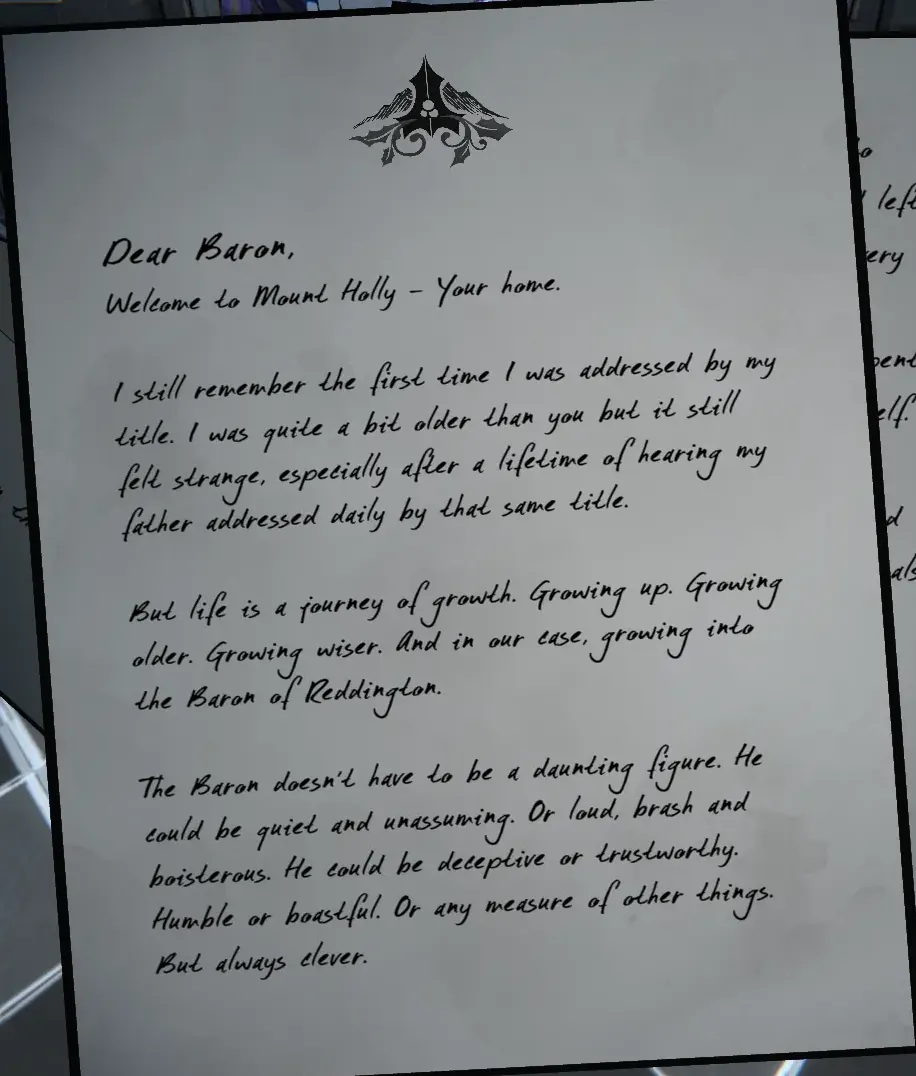 Dear Baron,
Welcome to Mount Holly – Your home.
I still remember the first time I was addressed by my
title. I was quite a bit older than you but it still
felt strange, especially after a lifetime of hearing my
father addressed daily by that same title.
But life is a journey of growth. Growing up. Growing
older. Growing wiser. And in our case, growing into
the Baron of Reddington.
The Baron doesn't have to be a daunting figure. He
could be quiet and unassuming. Or loud, brash and
boisterous. He could be deceptive or trustworthy.
Humble or boastful. Or any measure of other things.
But always clever.
left